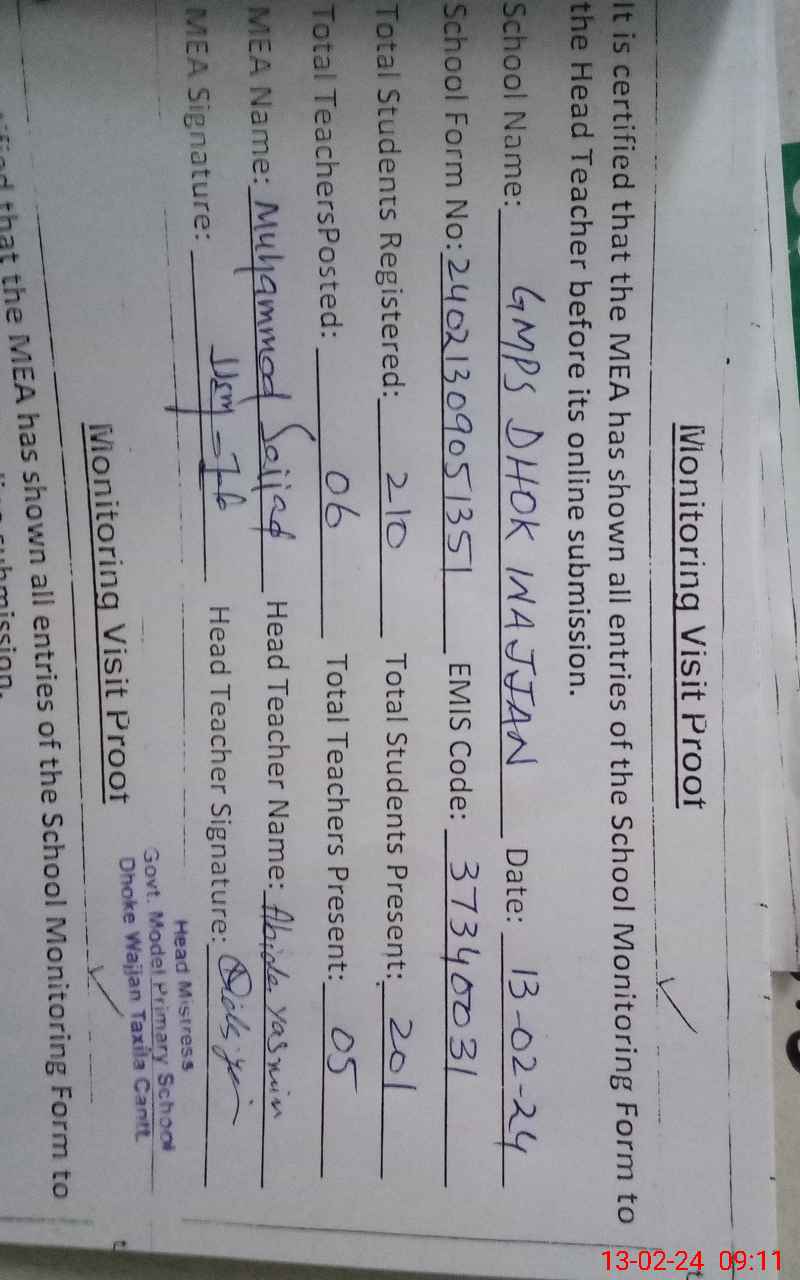 Monitoring Visit Proof
It is certified that the MEA has shown all entries of the School Monitoring Form to
the Head Teacher before its online submission.
School Name: GMPS DHOK WAJJAN Date: 13-02-24
School Form No: 24021309051351 EMIS Code: 37340031
Total Students Registered: 210 Total Students Present: 201
Total TeachersPosted: 06 Total Teachers Present: 05
MEA Name: Muhammad Sajjad Head Teacher Name: Abida Yasmin
MEA Signature: Head Teacher Signature:
Head Mistress
Govt. Model Primary School
Dhoke Wajjan Taxila Cantt.
Monitoring Visit Proof
that the MEA has shown all entries of the School Monitoring Form to
submission.
13-02-24 09:11